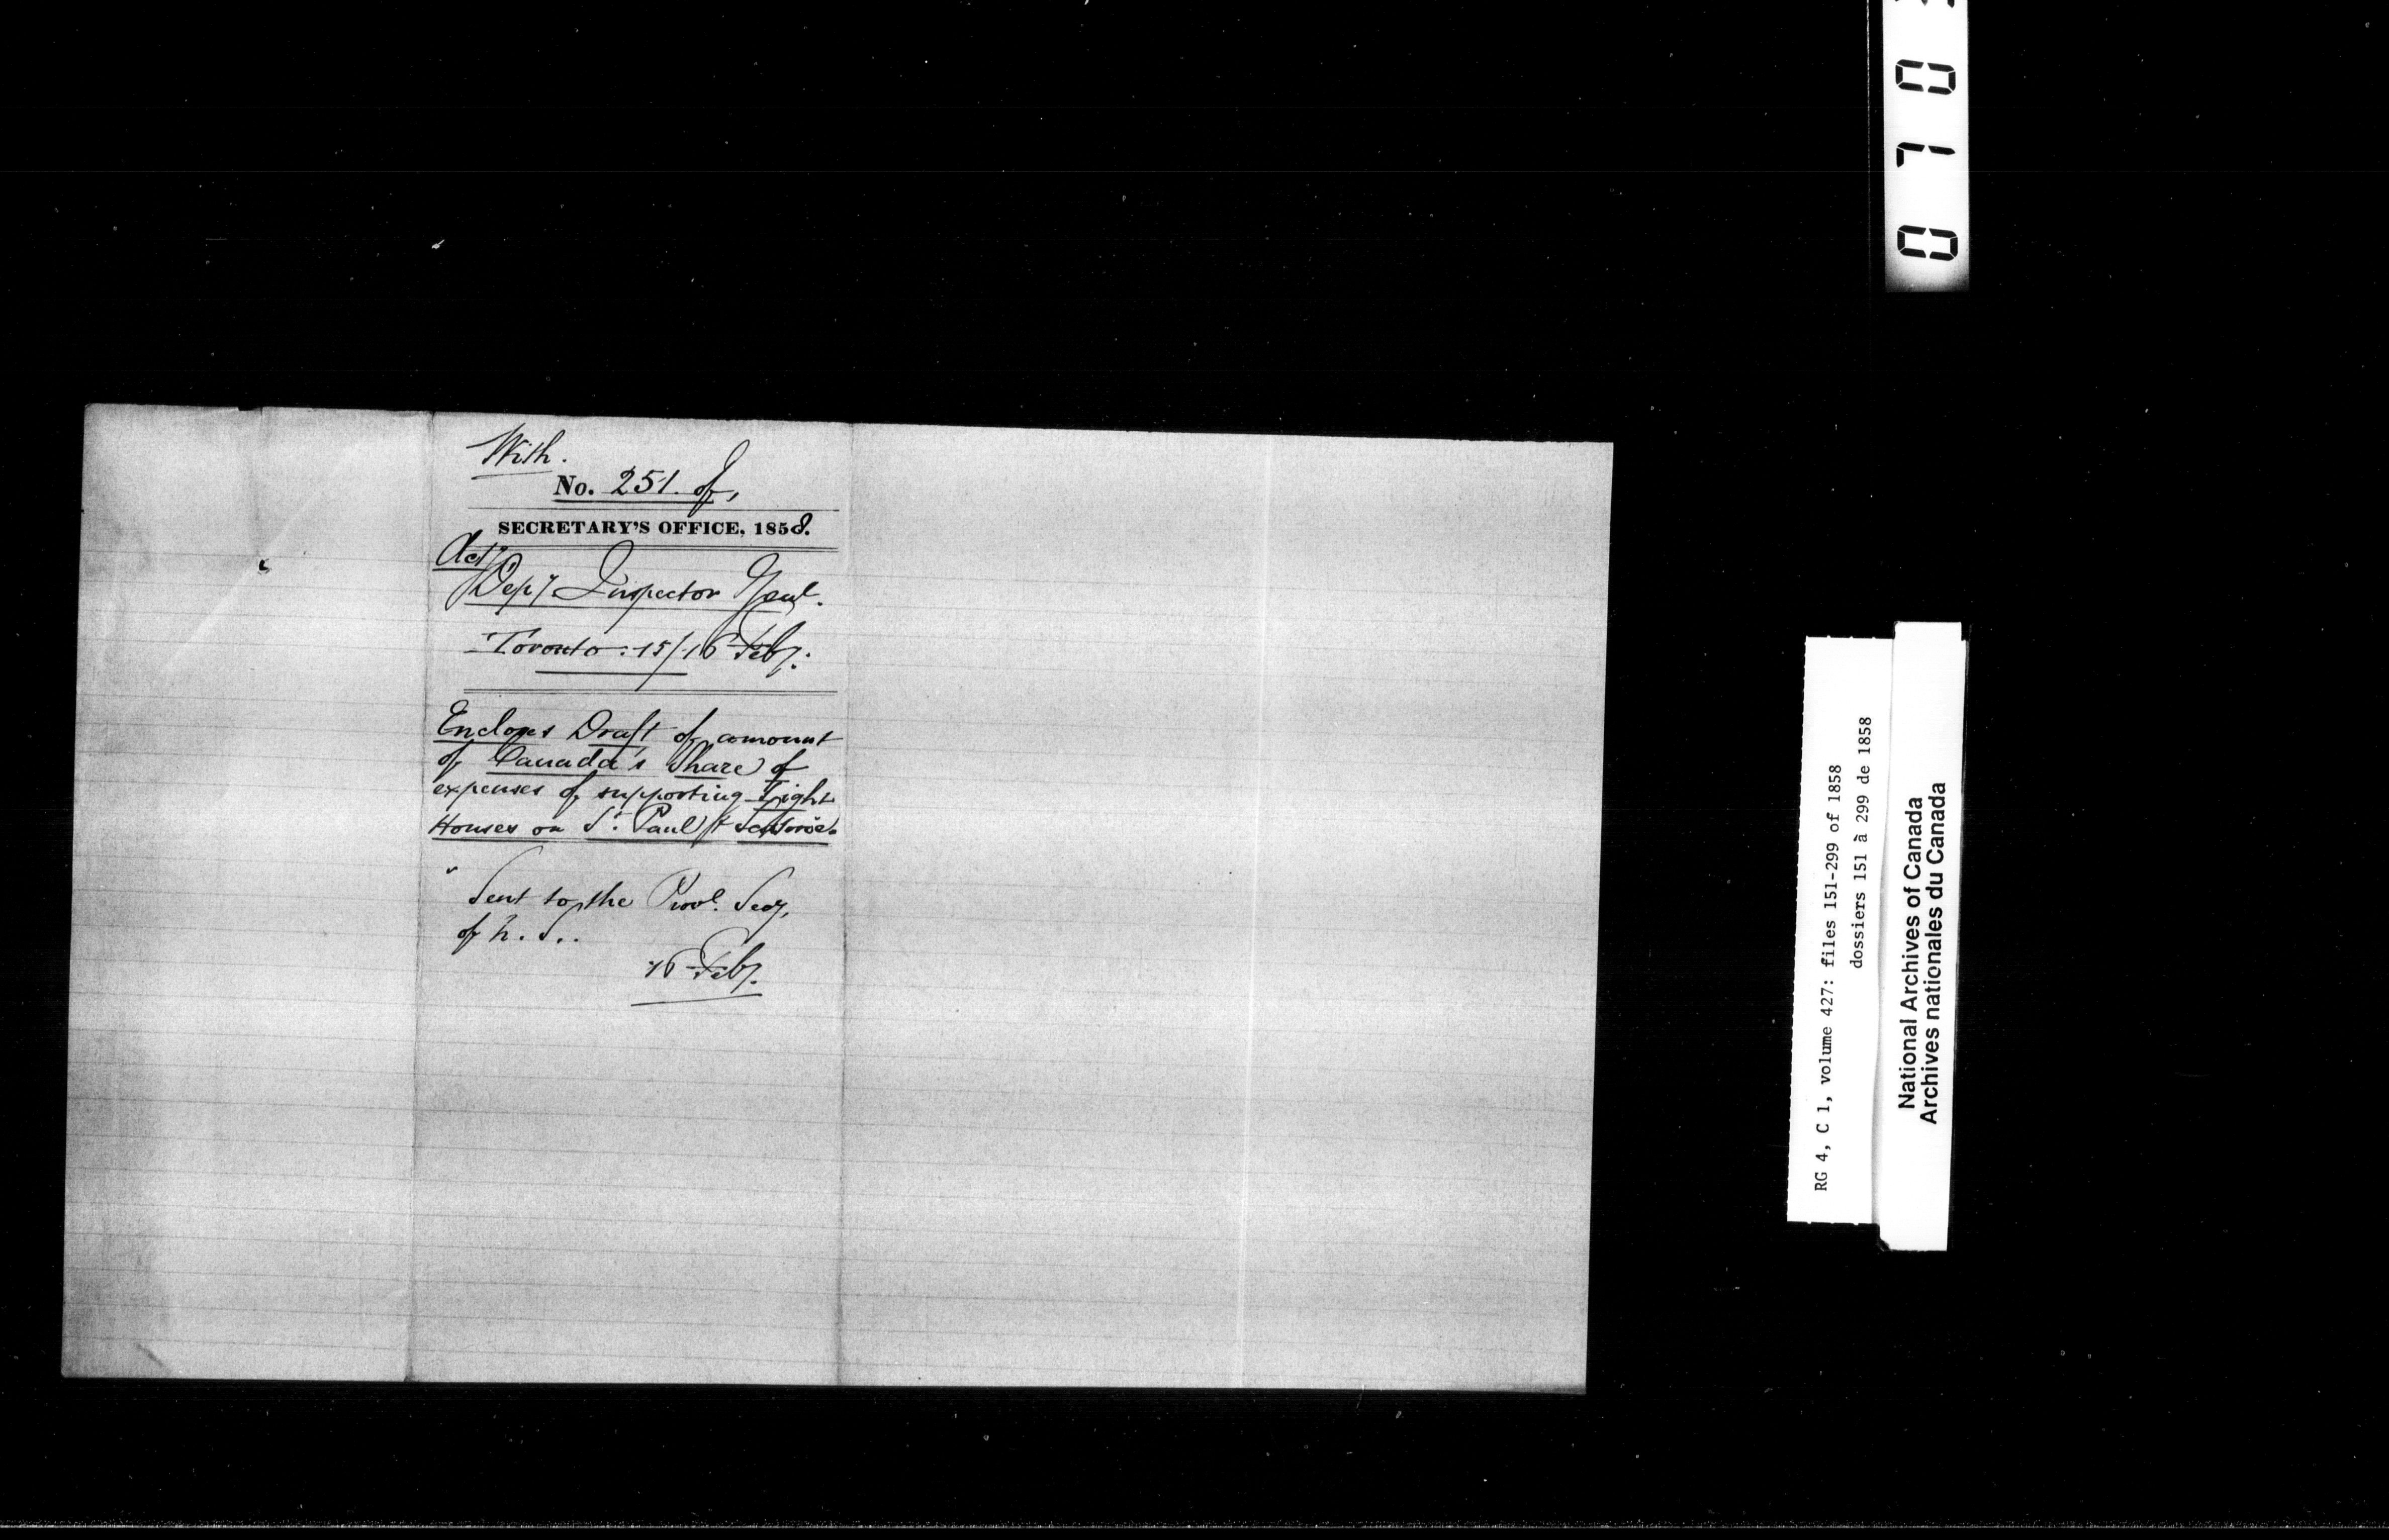 With.
No. 251. of,
SECRETARY'S OFFICE, 1858.
Actg
Depy Inspector Genl.
Toronto: 15/16 Feby.
Encloses Draft of amount
of Canada's Share of
expenses of supporting Light
Houses on St. Paul &
Sent to the Provl. Secy,
of N. S..
16 Feby.
0703
RG 4, C 1, volume 427: files 151-299 of 1858
dossiers 151 à 299 de 1858
National Archives of Canada
Archives nationales du Canada